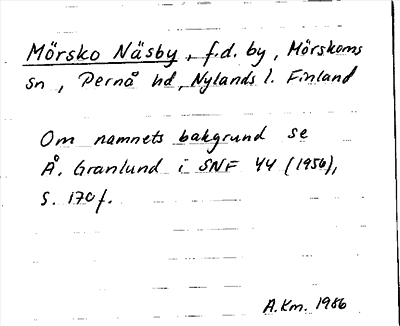 Mörsko Näsby, f.d. by, Mörskoms
sn, Pernå hd, Nylands l. Finland
Om namnets bakgrund se
Å. Granlund i SNF 44 (1956),
S. 170f.
A.Km. 1986